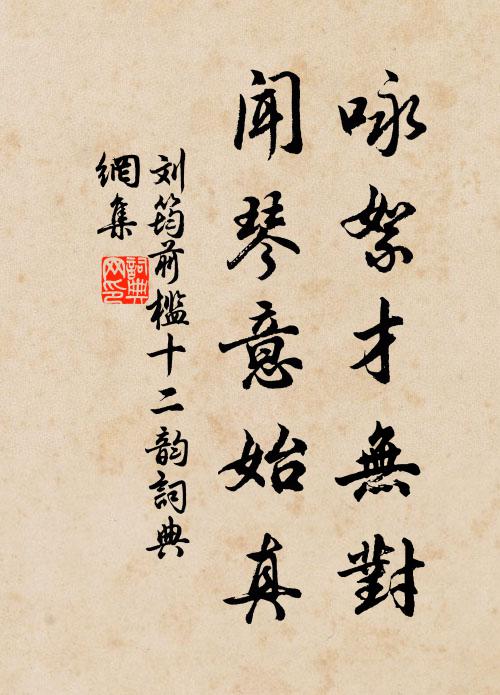 咏絮才無對
闻琴意始真
刘筠前槛十二韵詞典
網集
詞典
网印